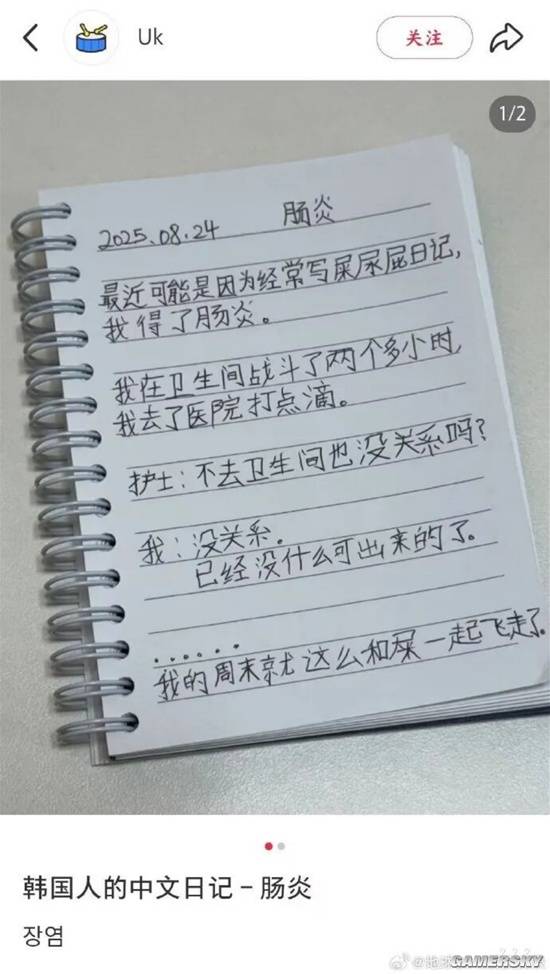 Uk
关注
1/2
2025.08.24 肠炎
最近可能是因为经常写屎尿屁日记,
我得了肠炎。
我在卫生间战斗了两个多小时,
我去了医院打点滴。
护士:不去卫生间也没关系吗?
我:没关系。
已经没什么可出来的了。
......
我的周末就这么和屎一起飞走了。
韩国人的中文日记 – 肠炎
장염
GAMERSKY